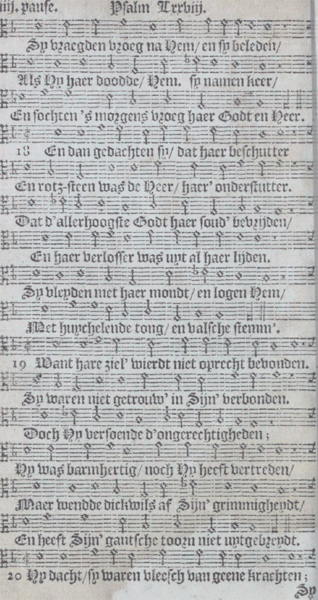 iiij. pause. Psalm Lxxviij.
Sy vraegden vroeg na Hem/ en sy beleden/
Als Hy haer doodde/ Hem. sy namen keer/
En sochten 's morgens vroeg haer Godt en Heer.
18 En dan gedachten sy/ dat haer beschutter
En rotz-steen was de Heer/ haer' onderstutter.
Dat d'allerhoogste Godt haer soud' bevrijden/
En haer verlosser was uyt al haer lijden.
Sy vleyden met haer mondt/ en logen Hem/
Met huychelende tong/ en valsche stemm'.
19 Want hare ziel' wierdt niet oprecht bevonden.
Sy waren niet getrouw' in Sijn' verbonden.
Doch Hy versoende d'ongerechtigheden;
Hy was barmhertig/ noch Hy heeft vertreden/
Maer wendde dickwils af Sijn' grimmigheydt/
En heeft Sijn' gantsche toorn niet uytgebreydt.
20 Hy dacht/ sy waren vleesch van geene krachten;
Sy